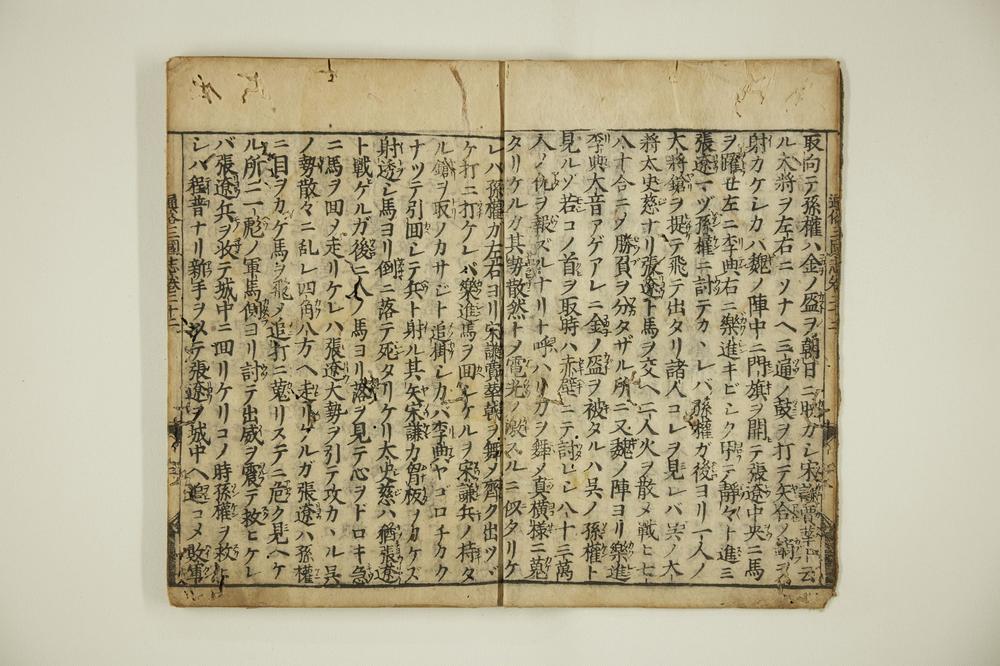 取向テ孫權ハ金ノ盔ヲ朝日ニ映カシ宋謙賈華ト云
ル大將ヲ左右ニソナヘ三遍ノ鼓ヲ打テ矢合ノ鏑ヲ
射カケシカハ魏ノ陣中ニ門旗ヲ開テ張遼中央ニ馬
ヲ躍セ左ニ李典右ニ樂進キビシク甲テ靜々ト進ミ
張遼マヅ孫權ニ討テカヽレバ孫權ガ後ヨリ一人ノ
大將鎗ヲ提テ飛テ出タリ諸人コレヲ見レバ呉ノ大
將太史慈ナリ張遼ト馬ヲ交ヘ二人火ヲ散メ戰ヒ七
八十合ニメ勝負ヲ分タザル所ニ又魏ノ陣ヨリ樂進
李典大音アゲアレニ金ノ盔ヲ被タルハ呉ノ孫權ト
見ルゾ若コノ首ヲ取時ハ赤壁ニテ討レシ八十三萬
人ノ仇ヲ報ズルナリト呼ハリ刀ヲ舞メ真横様ニ蒐
タリケルカ其勢散然トメ電光ノ激スルニ似タリケ
レバ孫權カ左右ヨリ宋謙賈華戟ヲ舞メ齊ク出ヅバ
ケ打ニ打ケレバ樂進馬ヲ回シケルヲ宋謙兵ノ持タ
ル鎗ヲ取ノカサジト追掛シカハ李典ヤコロチカク
ナツテ引回シテ兵ト射ル其矢宋謙カ胷板ノカケズ
射透シ馬ヨリ倒ニ落テ死タリケリ太史慈ハ猶張遼
ト戰ケルガ後ニ人ノ馬ヨリ落ヲ見テ心ヲドロキ急
ニ馬ヲ回メ走リケレハ張遼大勢ヲ引テ攻カヽル呉
ノ勢散々ニ乱レ四角八方ヘ走リケルガ張遼ハ孫權
ニ目ヲカケ馬ヲ飛メ追打ニ蒐リステニ危ク見ヘケ
ル所ニ一彪ノ軍馬側ヨリ討テ出威ヲ震テ救ヒケレ
バ張遼兵ヲ收テ城中ニ回リケリコノ時孫權ヲ救ケ
シハ程普ナリ新手ヲ以テ張遼ヲ城中ヘ追コメ敗軍
通俗三國志卷二十二